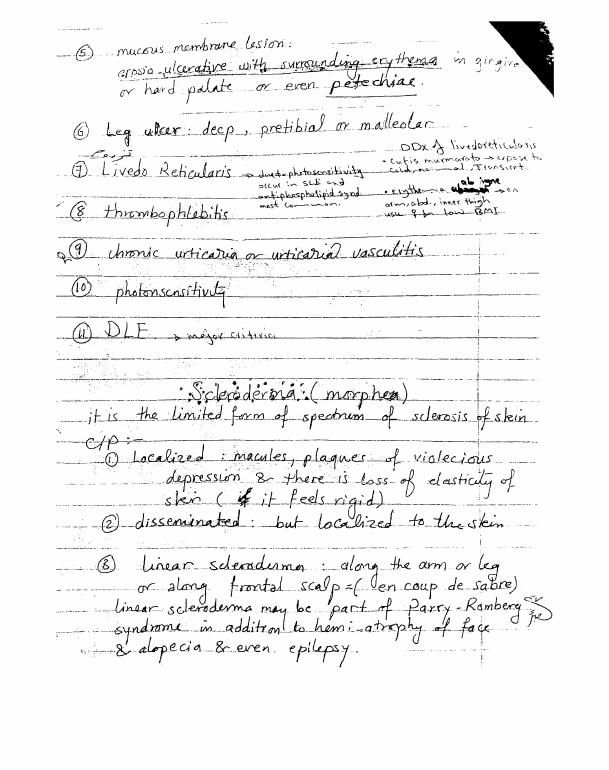 ⑤ mucous membrane lesion:
erosio-ulcerative with surrounding erythema in gingiva
or hard palate or even petechiae.
⑥ Leg ulcer: deep, pretibial or malleolar
DDx of livedoreticularis
⑦ Livedo Reticularis → due to photosensitivity
occur in SLE and
antiphospholipid synd
most common.
• cutis murmorata → expose to
cold, normal, Transient
• erythema ab igne → on
arm, abd., inner thigh
use for low BMI
⑧ thrombophlebitis
⑨ chronic urticaria or urticarial vasculitis
⑩ photonsensitivity
⑪ DLE → major criteria
Scleroderma (morphea)
it is the limited form of spectrum of sclerosis of skin
C/P :-
① Localized : macules, plaques of violecious
depression & there is loss of elasticity of
skin ( it feels rigid)
② disseminated : but localized to the skin
③ linear scleroderma : along the arm or leg
or along frontal scalp = ( en coup de sabre)
linear scleroderma may be part of Parry-Romberg
syndrome in addition to hemi-atrophy of face
& alopecia & even epilepsy.